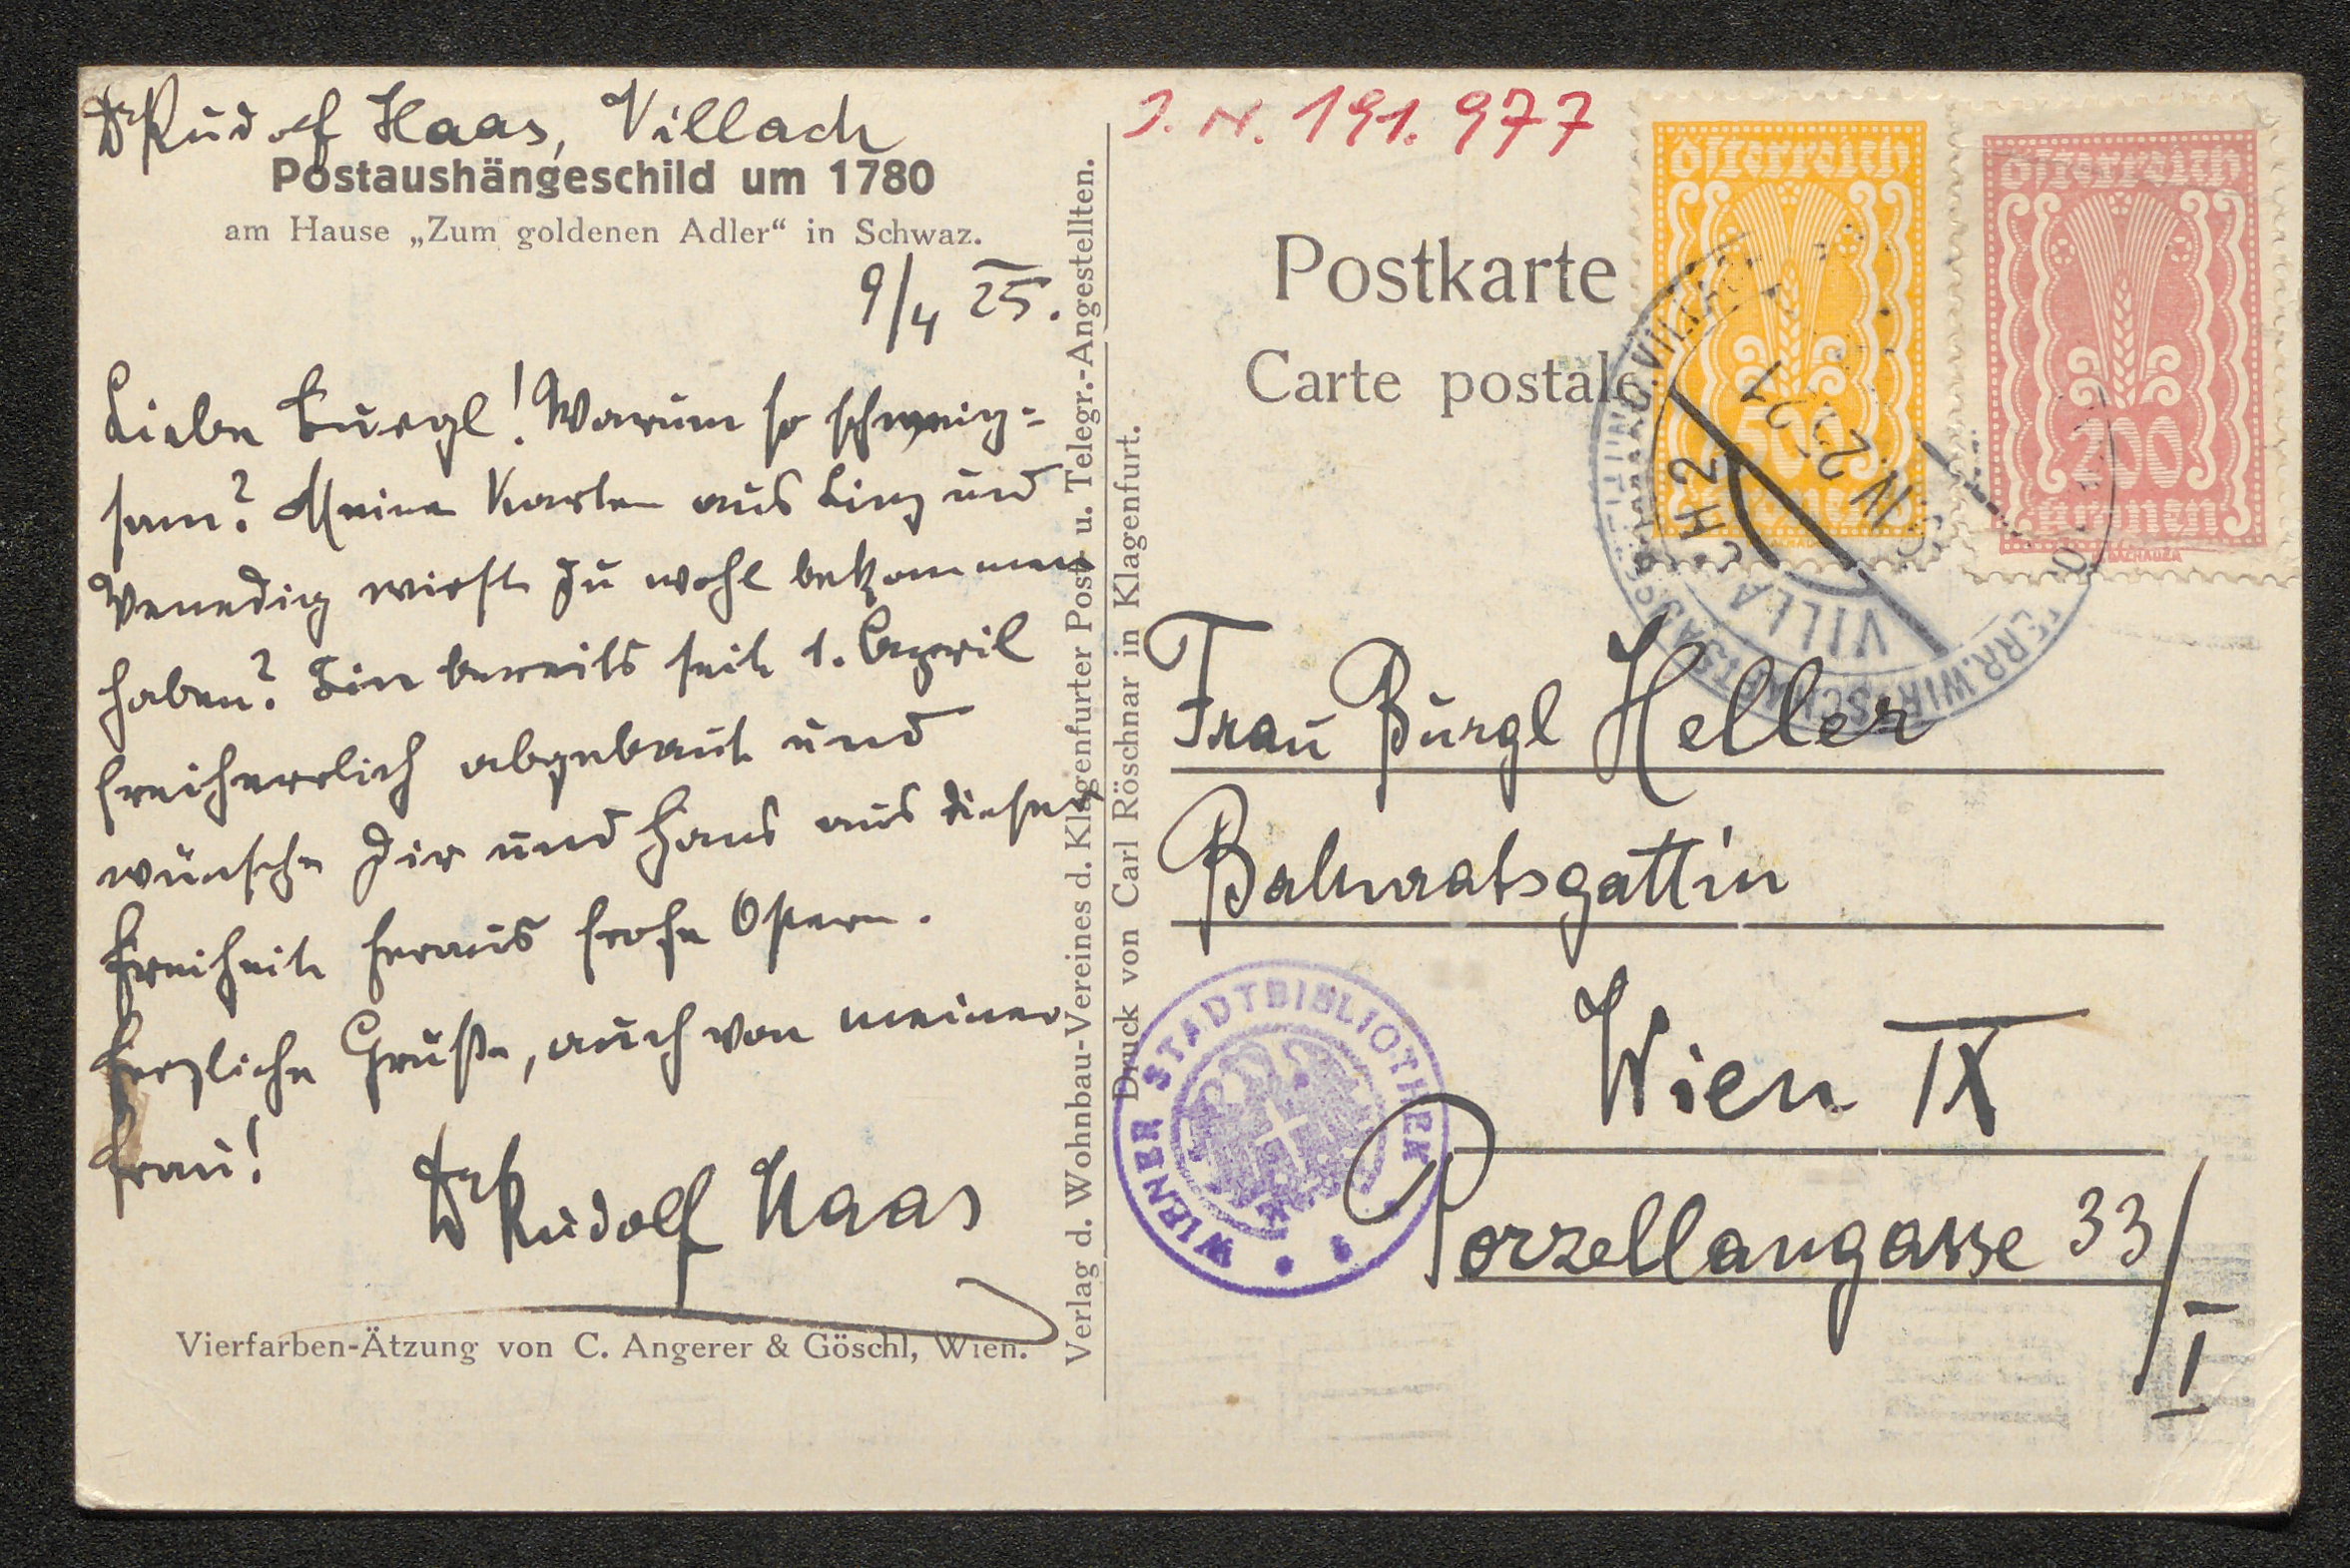 Dr Rudolf Haas, Villach
Postaushängeschild um 1780
am Hause „Zum goldenen Adler“ in Schwaz.
9/4 25.
Liebe Burgl! Warum so schweig-
sam? Meine Karten aus Linz und
Venedig wirst Du wohl bekommen
haben? Bin bereits seit 1. April
freiherrlich abgebaut und
wünsche Dir und Hans aus dieser
Freiheit heraus frohe Ostern.
Herzliche Grüße, auch von meiner
Frau!
Dr Rudolf Haas
Vierfarben-Ätzung von C. Angerer & Göschl, Wien.
Verlag d. Wohnbau-Vereines d. Klagenfurter Post- u. Telegr.-Angestellten.
Druck von Carl Röschnar in Klagenfurt.
J. N. 191.977
Postkarte
Carte postale
Österreich
500
Kronen
Österreich
200
Kronen
VILLACH 2
Frau Burgl Heller
Bahnratsgattin
Wien IX
Porzellangasse 33/I
WIENER STADTBIBLIOTHEK